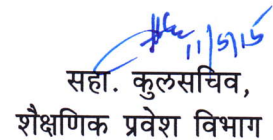 11/5/15
सहा. कुलसचिव,
शैक्षणिक प्रवेश विभाग